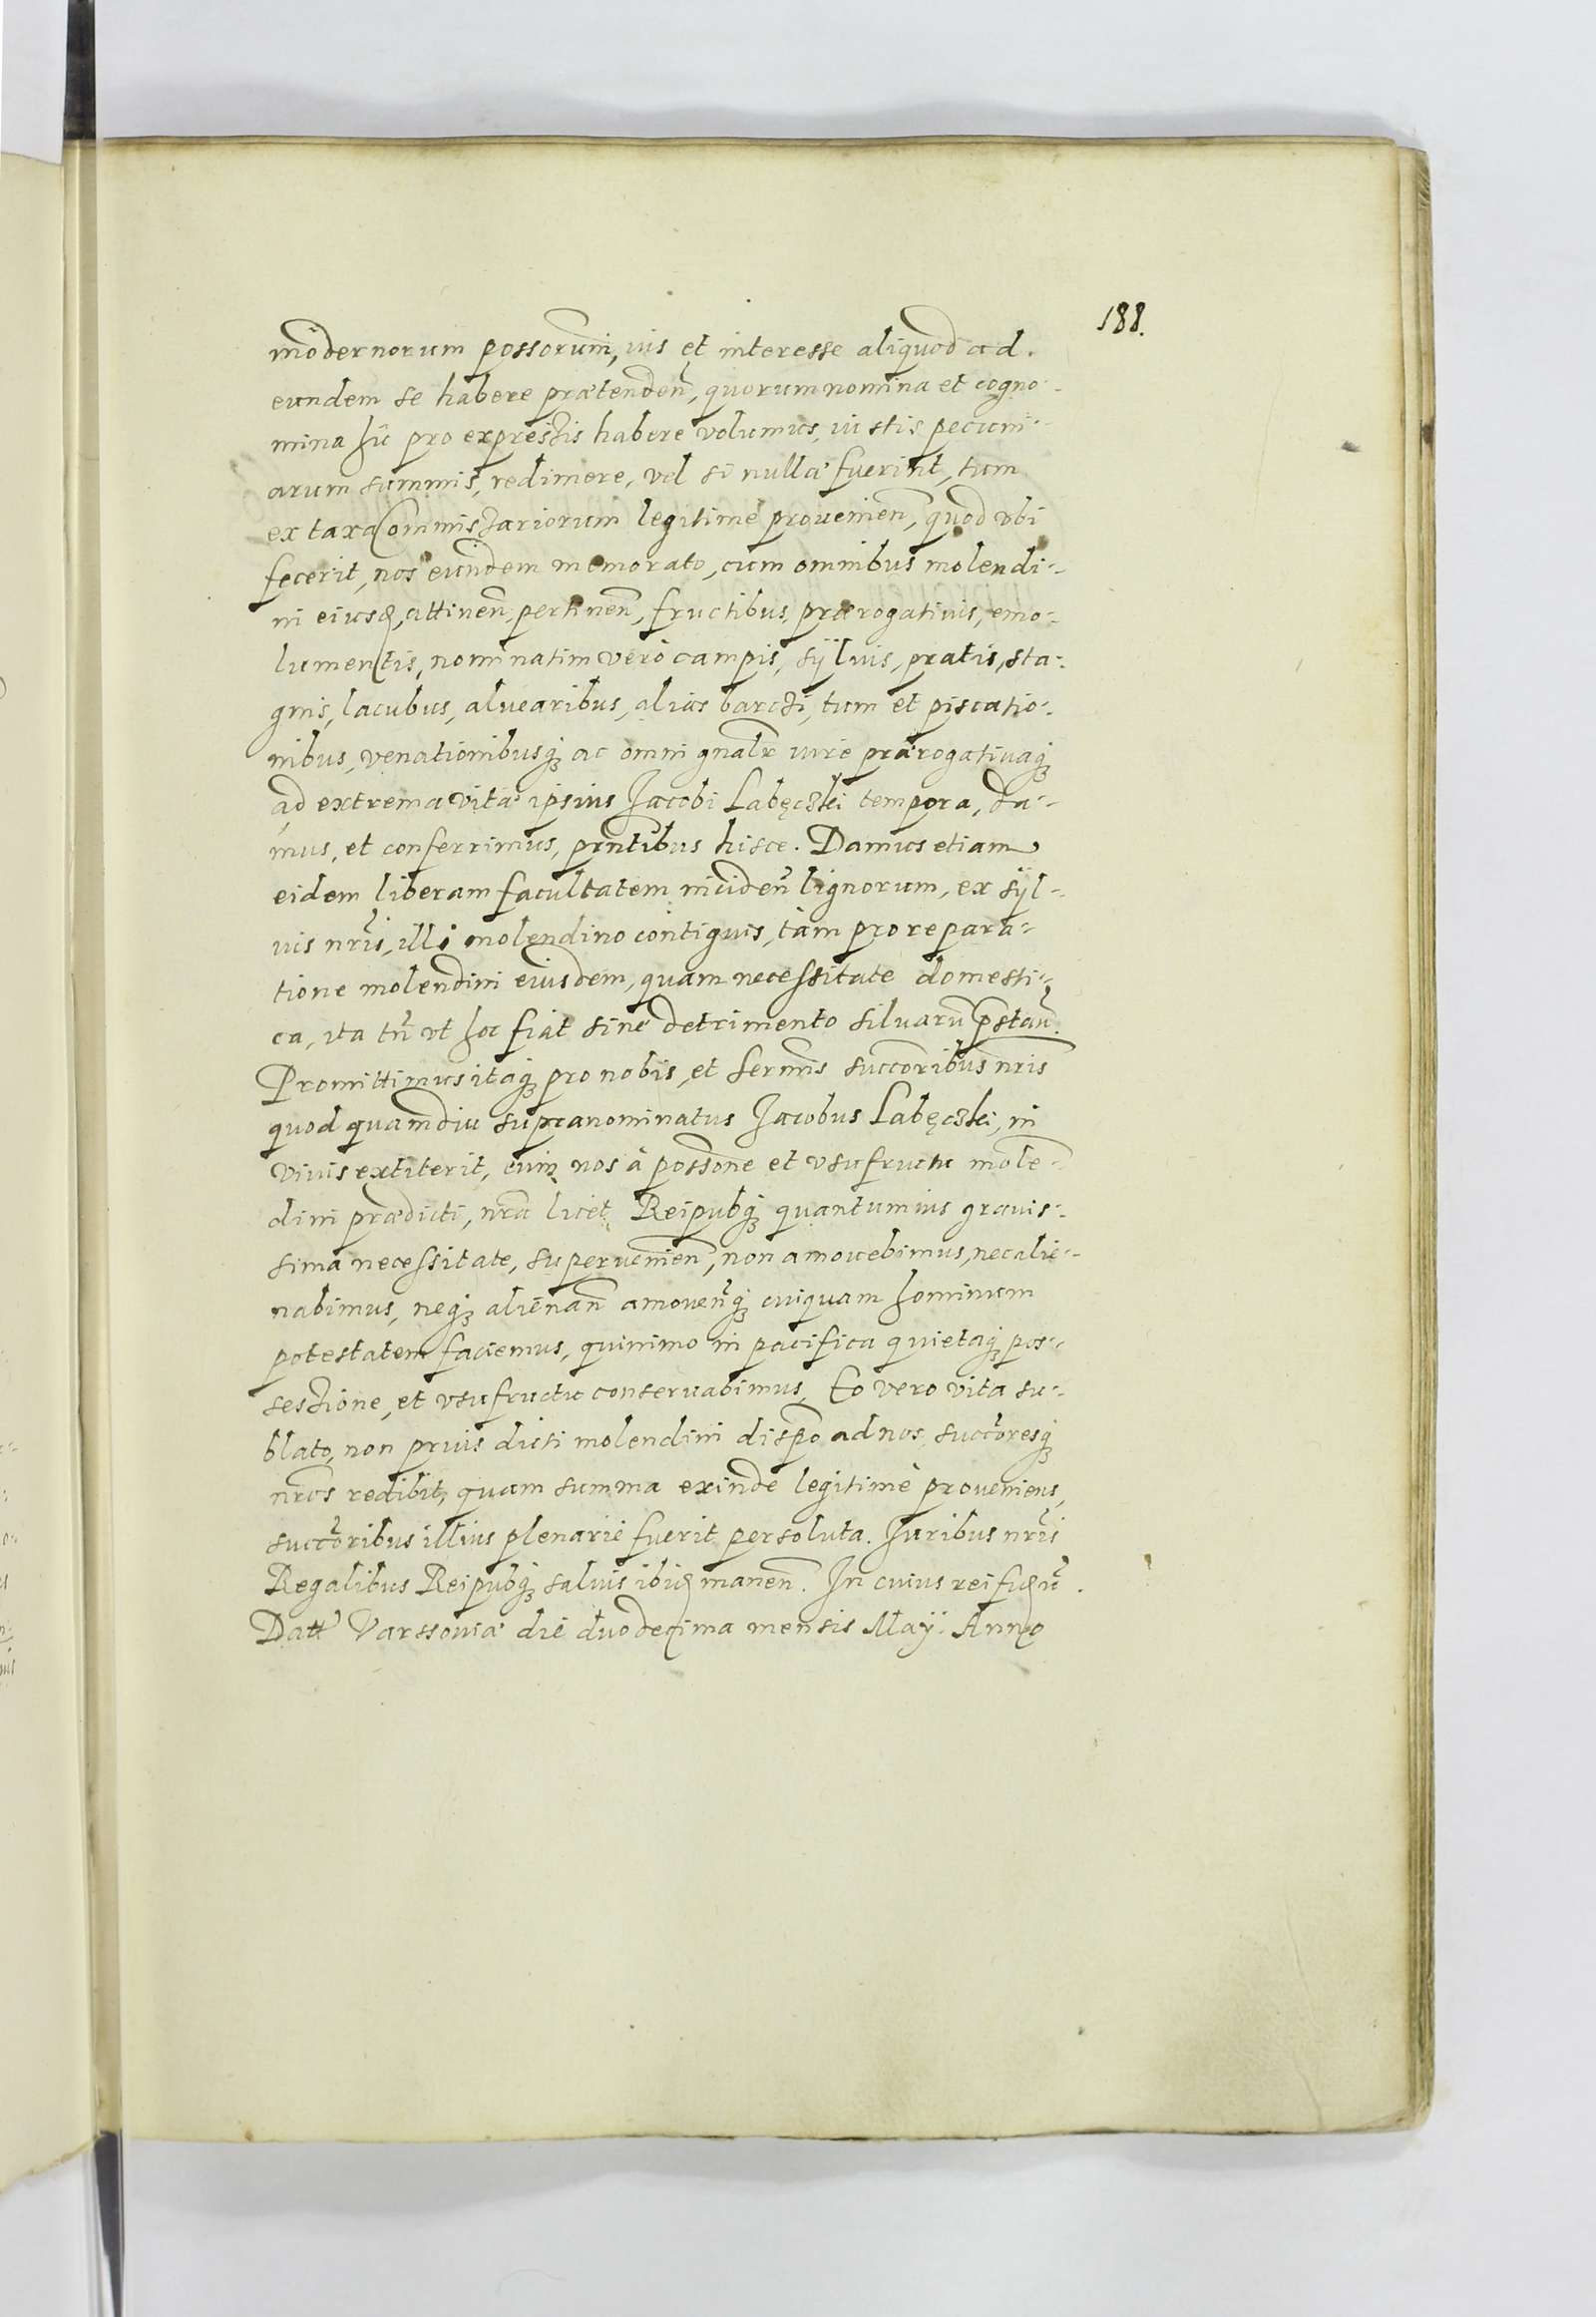 188.
modernorum possorum, ius et interesse aliquod ad
eundem se habere prætenden̄, quorum nomina et cogno-
mina hic pro expressis habere volumus, iustis pecuni-
arum summis, redimere, vel si nullæ fuerint, tum
ex taxa Commissariorum legitime prouenien̄, quod vbi
fecerit, nos eundem memorato, cum omnibus molendi-
ni eiusd, attinen̄, pertinen̄, fructibus, prærogatiuis, emo-
lumentis, nominatim verò campis, sÿluis, pratis, sta-
gnis, lacubus, aluearibus, alias barcżi, tum et piscatio-
nibus, venationibusq; ac omni gnalr iure prærogatiuaq;
ad extrema vitæ ipsius Jacobi Labęczki tempora, da-
mus, et conferrimus, prntibus hisce. Damus etiam
eidem liberam facultatem inciden̄ lignorum, ex sÿl-
uis nris, illi molendino contiguis, tàm pro repara-
tione molendini eiusdem, quam necessitate domesti-
ca, ita tn̄ vt hoc fiat sine detrimento siluarū pstan̄.
Promittimus itaq; pro nobis, et Sermis succoribus nris
quod quamdiu supranominatus Jacobus Labęczki, in
viuis extiterit, eum nos à possone et vsufructu molē-
dini prædicti, nra licet Reipubq; quantumuis grauis-
sima necessitate, superuenien̄, non amouebimus, nec alie-
nabimus, neq; alienan̄ amouen̄q; cuiquam hominum
potestatem faciemus, quinimo in pacifica quietaq; pos-
sessione, et vsufructu conseruabimus, Eo vero vita su-
blato, non prius dicti molendini dispo ad nos, succoresq;
nros redibit, quam summa exinde legitimè proueniens,
succoribus illius plenarie fuerit persoluta. Juribus nris
Regalibus Reipubq; saluis ibid manen̄. In cuius rei fid
Datt Varssouiæ die duodecima mensis Maÿ. Anno